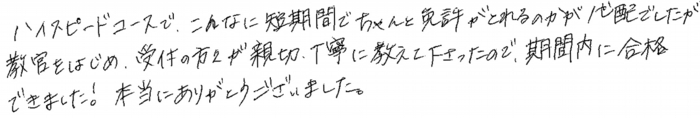 ハイスピードコースで、こんなに短期間でちゃんと免許がとれるのかが心配でしたが
教官をはじめ、受付の方々が親切、丁寧に教えて下さったので、期間内に合格
できました！ 本当にありがとうございました。